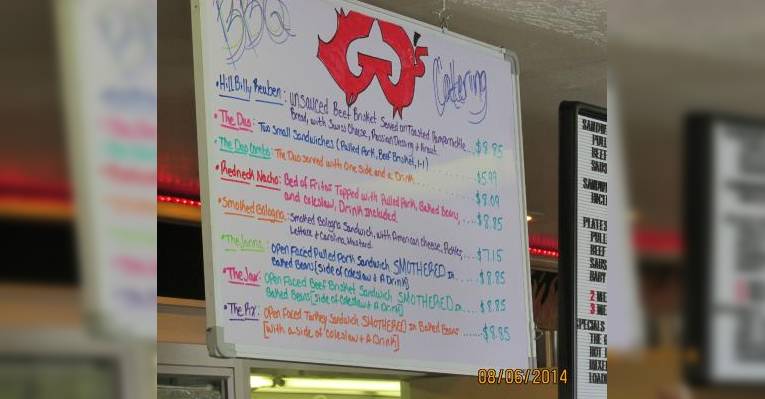 BBQ
Catering
•Hillbilly Reuben: Unsauced Beef Brisket Served on Toasted Pumpernickle
Bread, with Swiss Cheese, Russian Dressing & Kraut. $8.85
•The Duo: Two Small Sandwiches (Pulled Pork, Beef Brisket, H)
$5.99
•The Duo Combo: The Duo served with One Side and a Drink
$8.09
•Redneck Nacho: Bed of Fritos Topped with Pulled Pork, Baked Beans,
and coleslaw, Drink Included. $8.85
•Smoked Bologna: Smoked Bologna Sandwich, with American Cheese, Pickles,
Lettuce & Carolina Mustard. $7.15
•The : Open Faced Pulled Pork Sandwich SMOTHERED In
Baked Beans [side of coleslaw & A Drink] $8.85
•The Jax: Open Faced Beef Brisket Sandwich SMOTHERED In
Baked Beans [side of Coleslaw & A Drink] $8.85
•The : Open Faced Turkey Sandwich SMOTHERED In Baked Beans
[with a side of coleslaw & A Drink] $8.85
PULL
BEEF
PLATES
PULL
BEEF
BABY
2 ME
3 ME
SPECIALS
THE
HOT
LOAD
08/06/2014